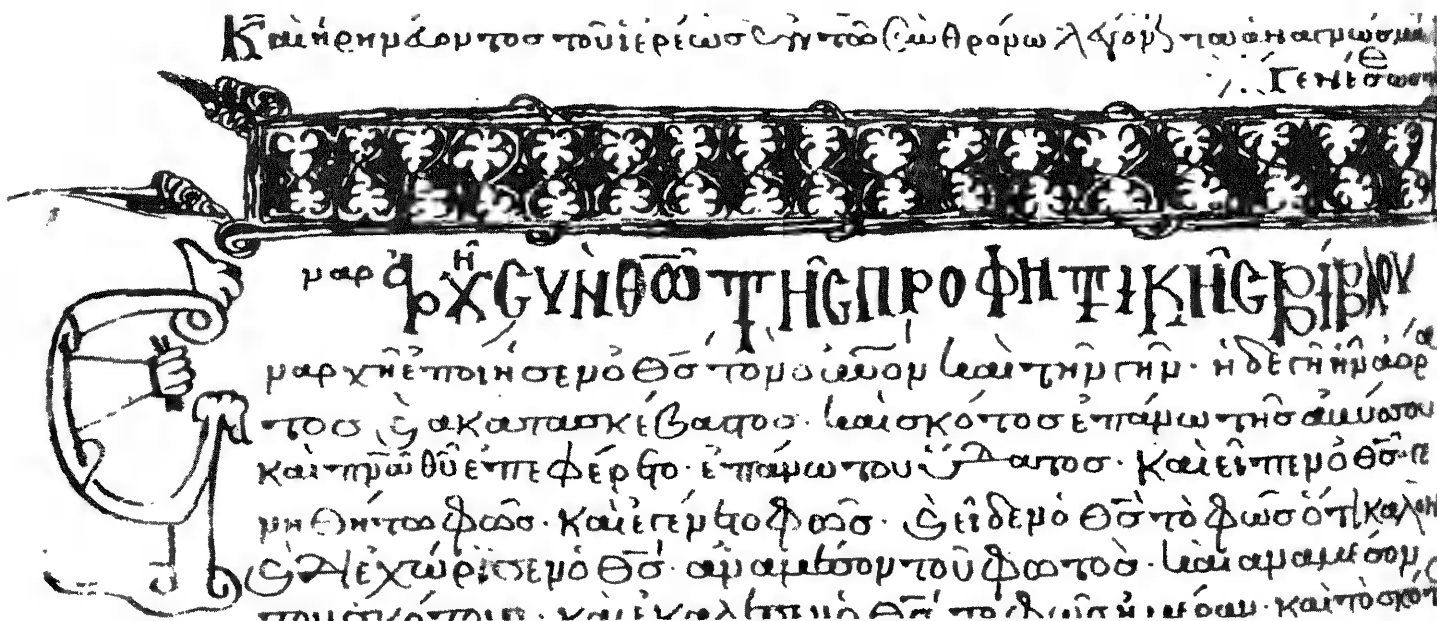 Καὶ τοῦ ἱερέως ἐν τῷ
Γενέσεως
ἀρχὴ σὺν θ͞ω τῆς προφητικῆς βίβλου
Ἐν ἀρχῆ ἐποίησεν ὁ θ͞ς τὸν οὐ͞νον καὶ τὴν γῆν· ἡ δὲ γῆ ἦν ἀόρα
τος καὶ ἀκατασκέβαστος· καὶ σκότος ἐπάνω τῆς ἀβύσσου
καὶ πν͞α θ͞υ ἐπεφέρετο· ἐπάνω τοῦ ὕδατος· καὶ εἶπεν ὁ θ͞ς γε
νηθήτω φῶς· καὶ ἐγένετο φῶς· καὶ εἶδεν ὁ θ͞ς τὸ φῶς ὅτι καλὸν
καὶ διεχώρισεν ὁ θ͞ς· ἀναμέσον τοῦ φωτὸς· καὶ αναμέσον
τοῦ σκότους· καὶ ἐκάλεσεν ὁ θ͞ς τὸ φῶς ἡμέραν· καὶ τὸ σκότ